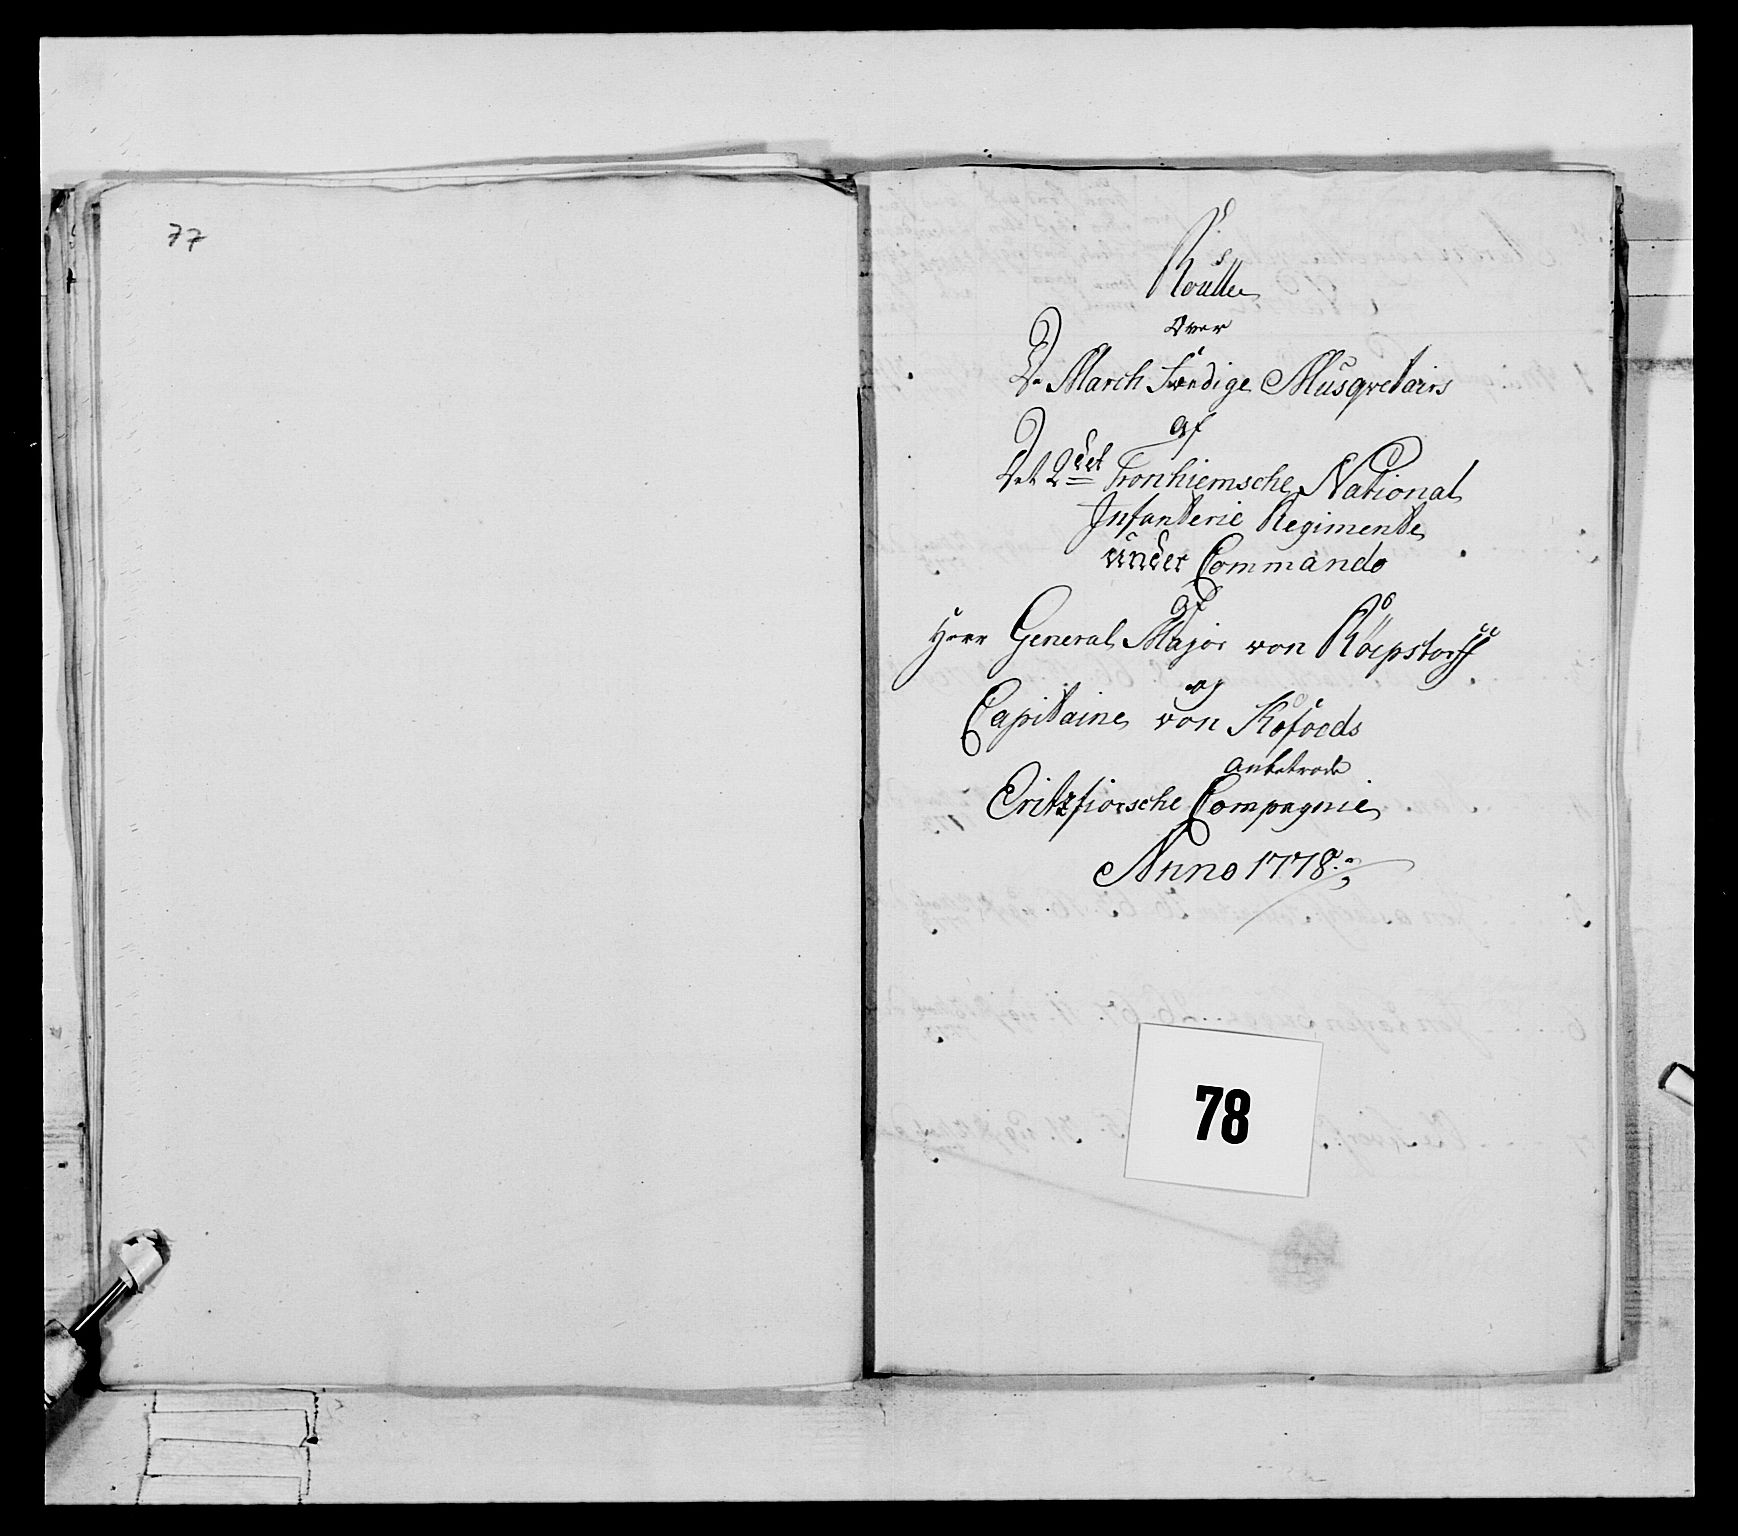 77
Roulle
Over
De March Færdige Musqvetairs
af
Det 2det Tronhiemsche National
Infanterie Regimente
under Commando
af
Herr General Major von Röepstorff
og
Capitaine von Kofoeds
anbetrode
Öritzfiorsche Compagnie
Anno 1778
78